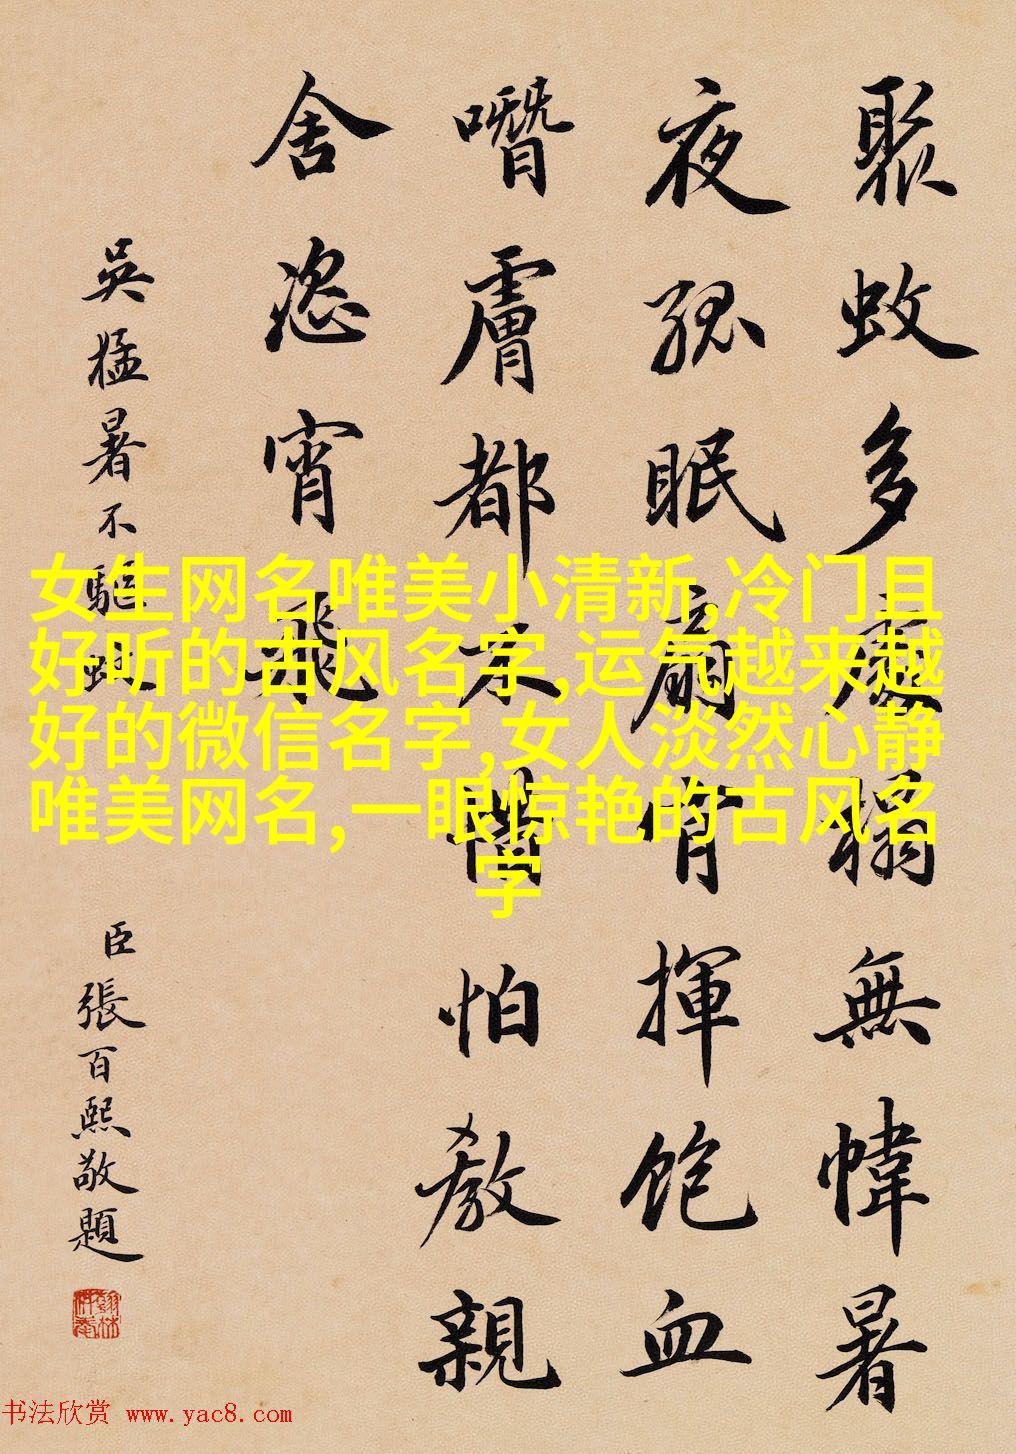 聚蚊多處榻無幃暑
夜孤眠扇肯揮飽血
噆膚都不惜怕教親
舍恣宵飛
吳猛暑不驅蚊
臣張百熙敬題
女生网名唯美小清新,冷门且
好听的古风名字,运气越来越
好的微信名字,女人淡然心静
唯美网名,一眼惊艳的古风名
字
书法欣赏 www.yac8.com